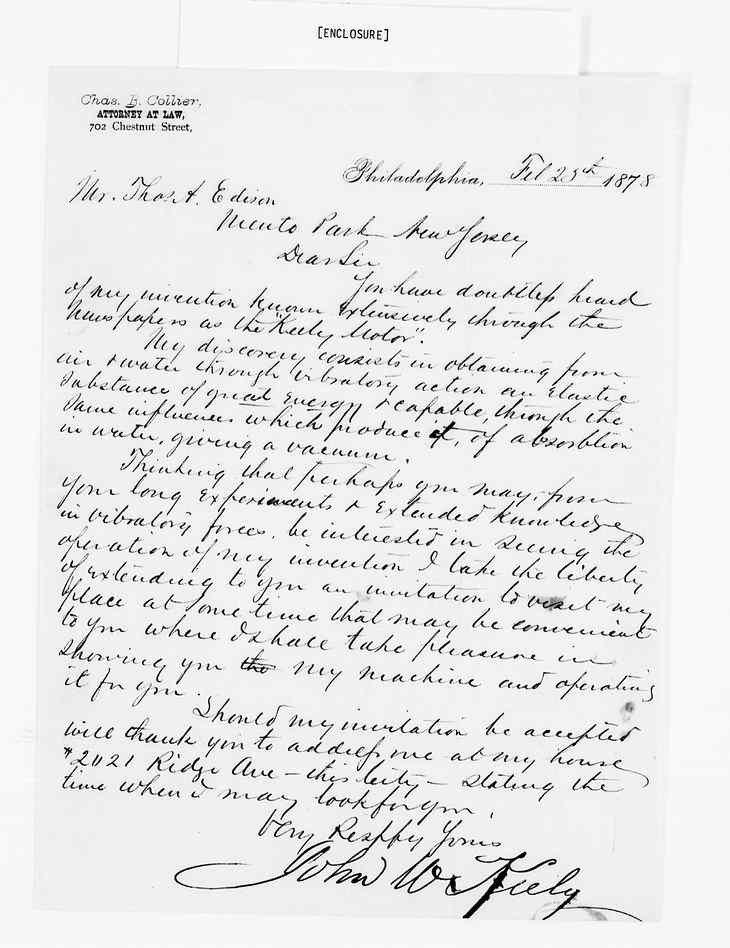 [ENCLOSURE]
Chas. B. Collier,
ATTORNEY AT LAW,
702 Chestnut Street,
Philadelphia, Feb 25th 1878
Mr. Thos A. Edison
Mento Park New Jersey
Dear Sir
You have doubtless heard
of my invention known extensively through the
Newspapers as the "Keely Motor".
My discovery consists in obtaining from
air & water through vibratory action an Elastic
Substance of great Energy & capable, through the
same influences which produce it, of absorbtion
in water, giving a vacuum.
Thinking that perhaps you may, from
your long Experiments & Extended Knowledge
in vibratory forces, be interested in seeing the
operation of my invention I take the liberty
of extending to you an invitation to visit my
place at some time that may be convenient
to you where I shall take pleasure in
showing you the my machine and operating
it for you.
Should my invitation be accepted
will thank you to address me at my house
# 2021 Ridge Ave – this city – stating the
time when I may look for you.
Very Respfy Yours
John W Keely